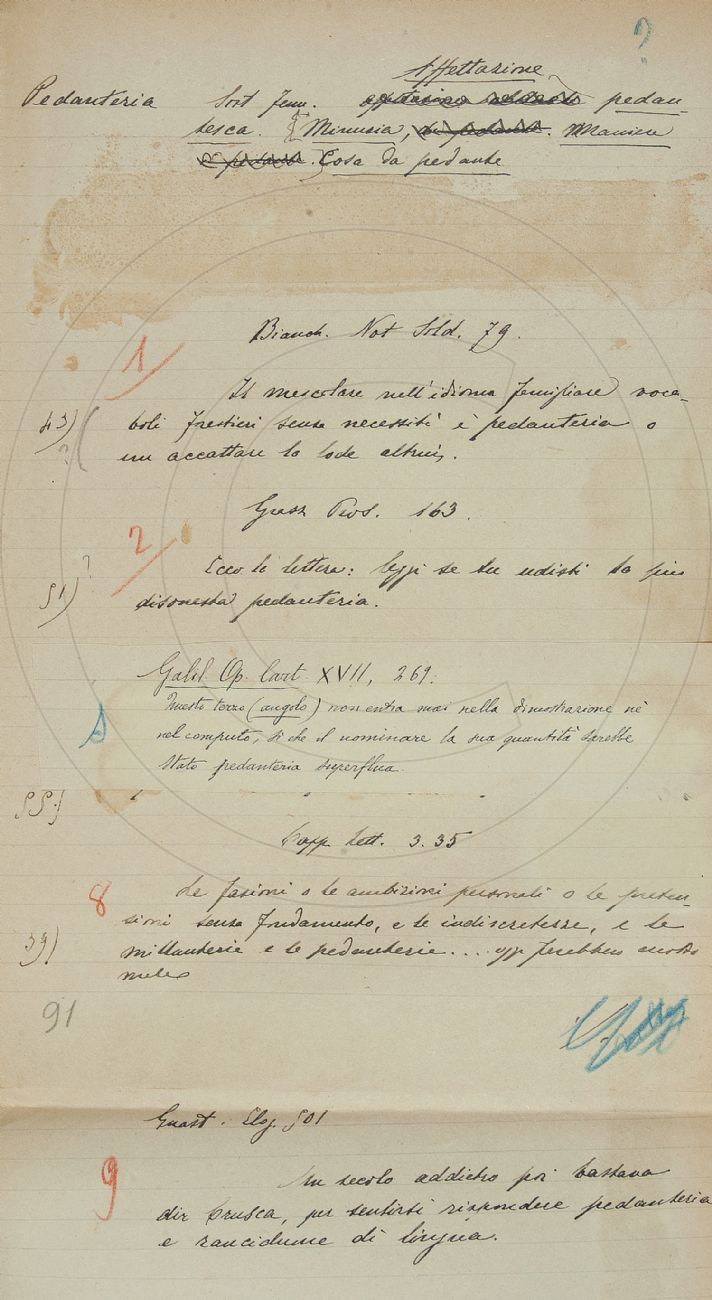 ?
Affettazione
Pedanteria Sost. fem. pedan-
tesca. Minuzia, Maniera
Cosa da pedante
Bianch. Not Sold. 79.
1
Il mescolare nell'idioma famigliare voca-
43) boli frestieri senza necessità è pedanteria o
? un accattare la lode altrui.
Grazz Pros. 163.
2
Ecco la lettera: leggi se tu udisti la più
51) ? disonesta pedanteria.
Galil. Op. lett. XVII, 269.
Questo terzo (angolo) non entra mai nella dimostrazione nè
nel computo, sì che il nominare la sua quantità sarebbe
stato pedanteria superflua.
55)
Capp. Lett. 3. 35
8 Le fazioni o le ambizioni personali o le preten-
sioni senza fondamento, e le indiscretezze, e le
39) millanterie e le pedanterie... oggi farebbero molto
male
91
Guast. Elog. 501
9
Un secolo addietro poi bastava
dir Crusca, per sentirsi rispondere pedanteria
e rancidume di lingua.